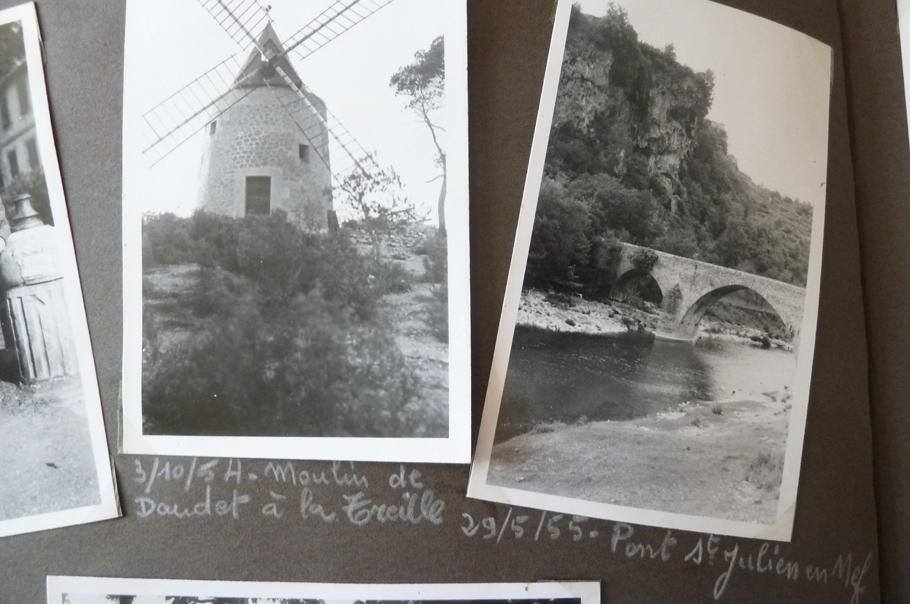 3/10/54 - Moulin de
Daudet à la Treille
29/5/55 - Pont St Julien en